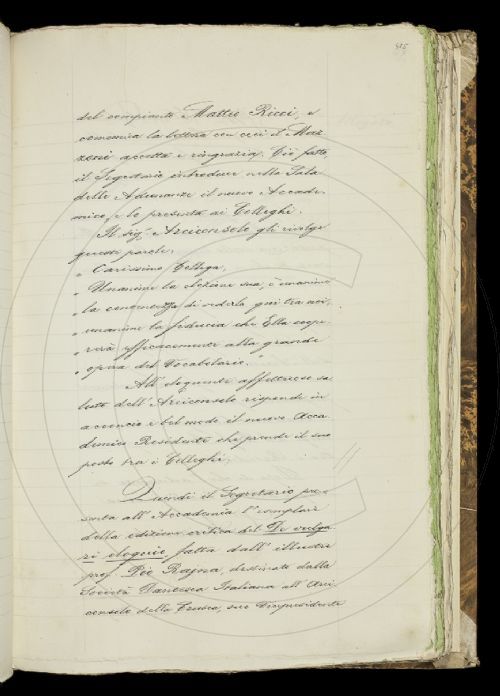 415
del compianto Matteo Ricci, e
comunica la lettera con cui il Maz-
zoni accetta e ringrazia. Ciò fatto,
il Segretario introduce nella Sala
delle Adunanze il nuovo Accade-
mico, e lo presenta ai Colleghi.
Il sig.r Arciconsolo gli rivolge
queste parole:
" Carissimo Collega,
" Unanime la elezione sua, è unanime
" la contentezza di vederla qui tra noi,
" unanime la fiducia che Ella coope-
" rerà efficacemente alla grande
" opera del Vocabolario. "
All' eloquente affettuoso sa-
luto dell' Arciconsolo risponde in
acconcio e bel modo il nuovo Acca-
demico Residente che prende il suo
posto tra i Colleghi.
Quindi il Segretario pre-
senta all' Accademia l' esemplare
della edizione critica del De vulga-
ri eloquio fatta dall' illustre
prof. Pio Rajna, destinato dalla
Società Dantesca Italiana all' Arci-
consolo della Crusca, suo Vicepresidente